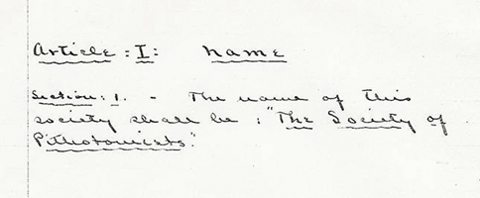 Article : I : Name
Section : 1. - The name of this
society shall be : "The Society of
Pithotomists."